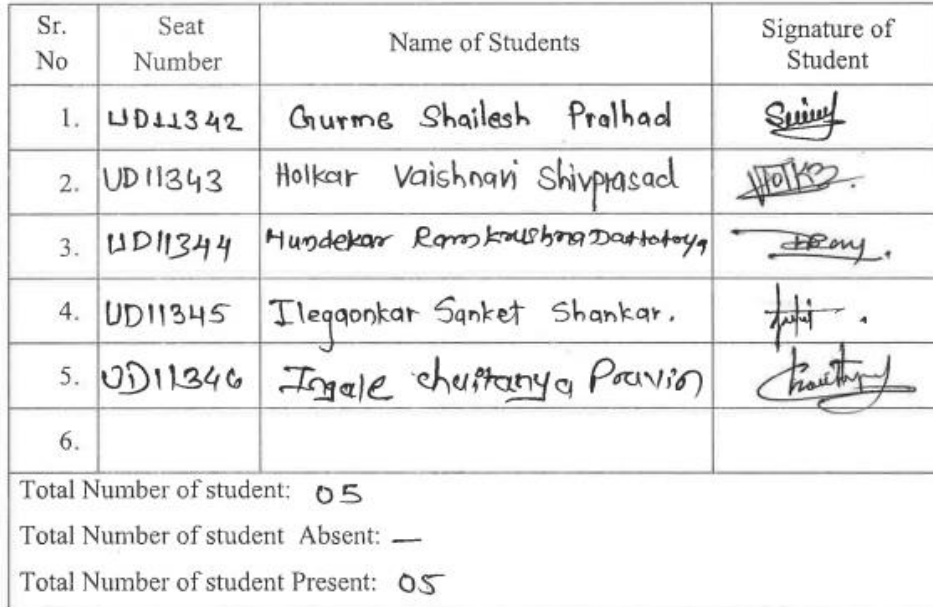 Sr. No Seat Number Name of Students Signature of Student
1. UD11342 Gurme Shailesh Pralhad
2. UD11343 Holkar Vaishnavi Shivprasad Holkar
3. UD11344 Hundekar Ramkrushna Dattatraya
4. UD11345 Ilegaonkar Sanket Shankar.
5. UD11346 Ingale Chaitanya Pravin
6.
Total Number of student: 05
Total Number of student Absent: —
Total Number of student Present: 05